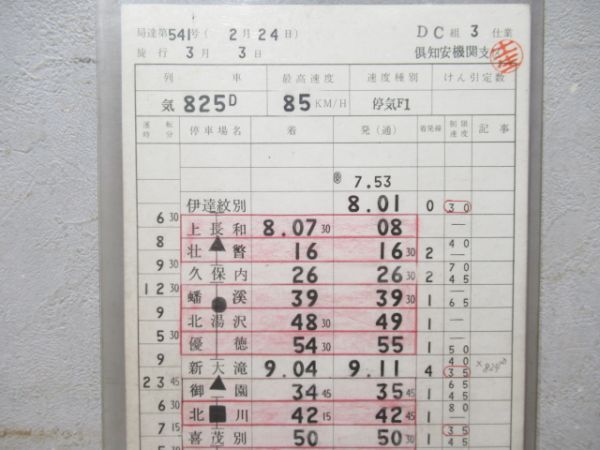 局達第541号( 2月24日) DC組 3 仕業
施行 3月 3日 倶知安機関支
列 車 最高速度 速度種別 けん引定数
気 825D 85KM/H 停気F1
運転時分 停車場名 着 発(通) 着発線 制限速度 記事
7.53
伊達紋別 8.01 0 30
6 30 上長和 8.07 30 08 —
8 壮瞥 16 16 30 2 40 —
9 30 久保内 26 26 30 2 70 45
12 30 蟠渓 39 39 30 1 — 65
9 北湯沢 48 30 49 1 —
5 30 優徳 54 30 55 1 — 50
9 新大滝 9.04 9.11 4 40 35 ×824D
23 45 御園 34 45 35 45 1 65 45
6 30 北 川 42 15 42 45 1 80 —
7 15 喜茂別 50 50 30 1 35 45